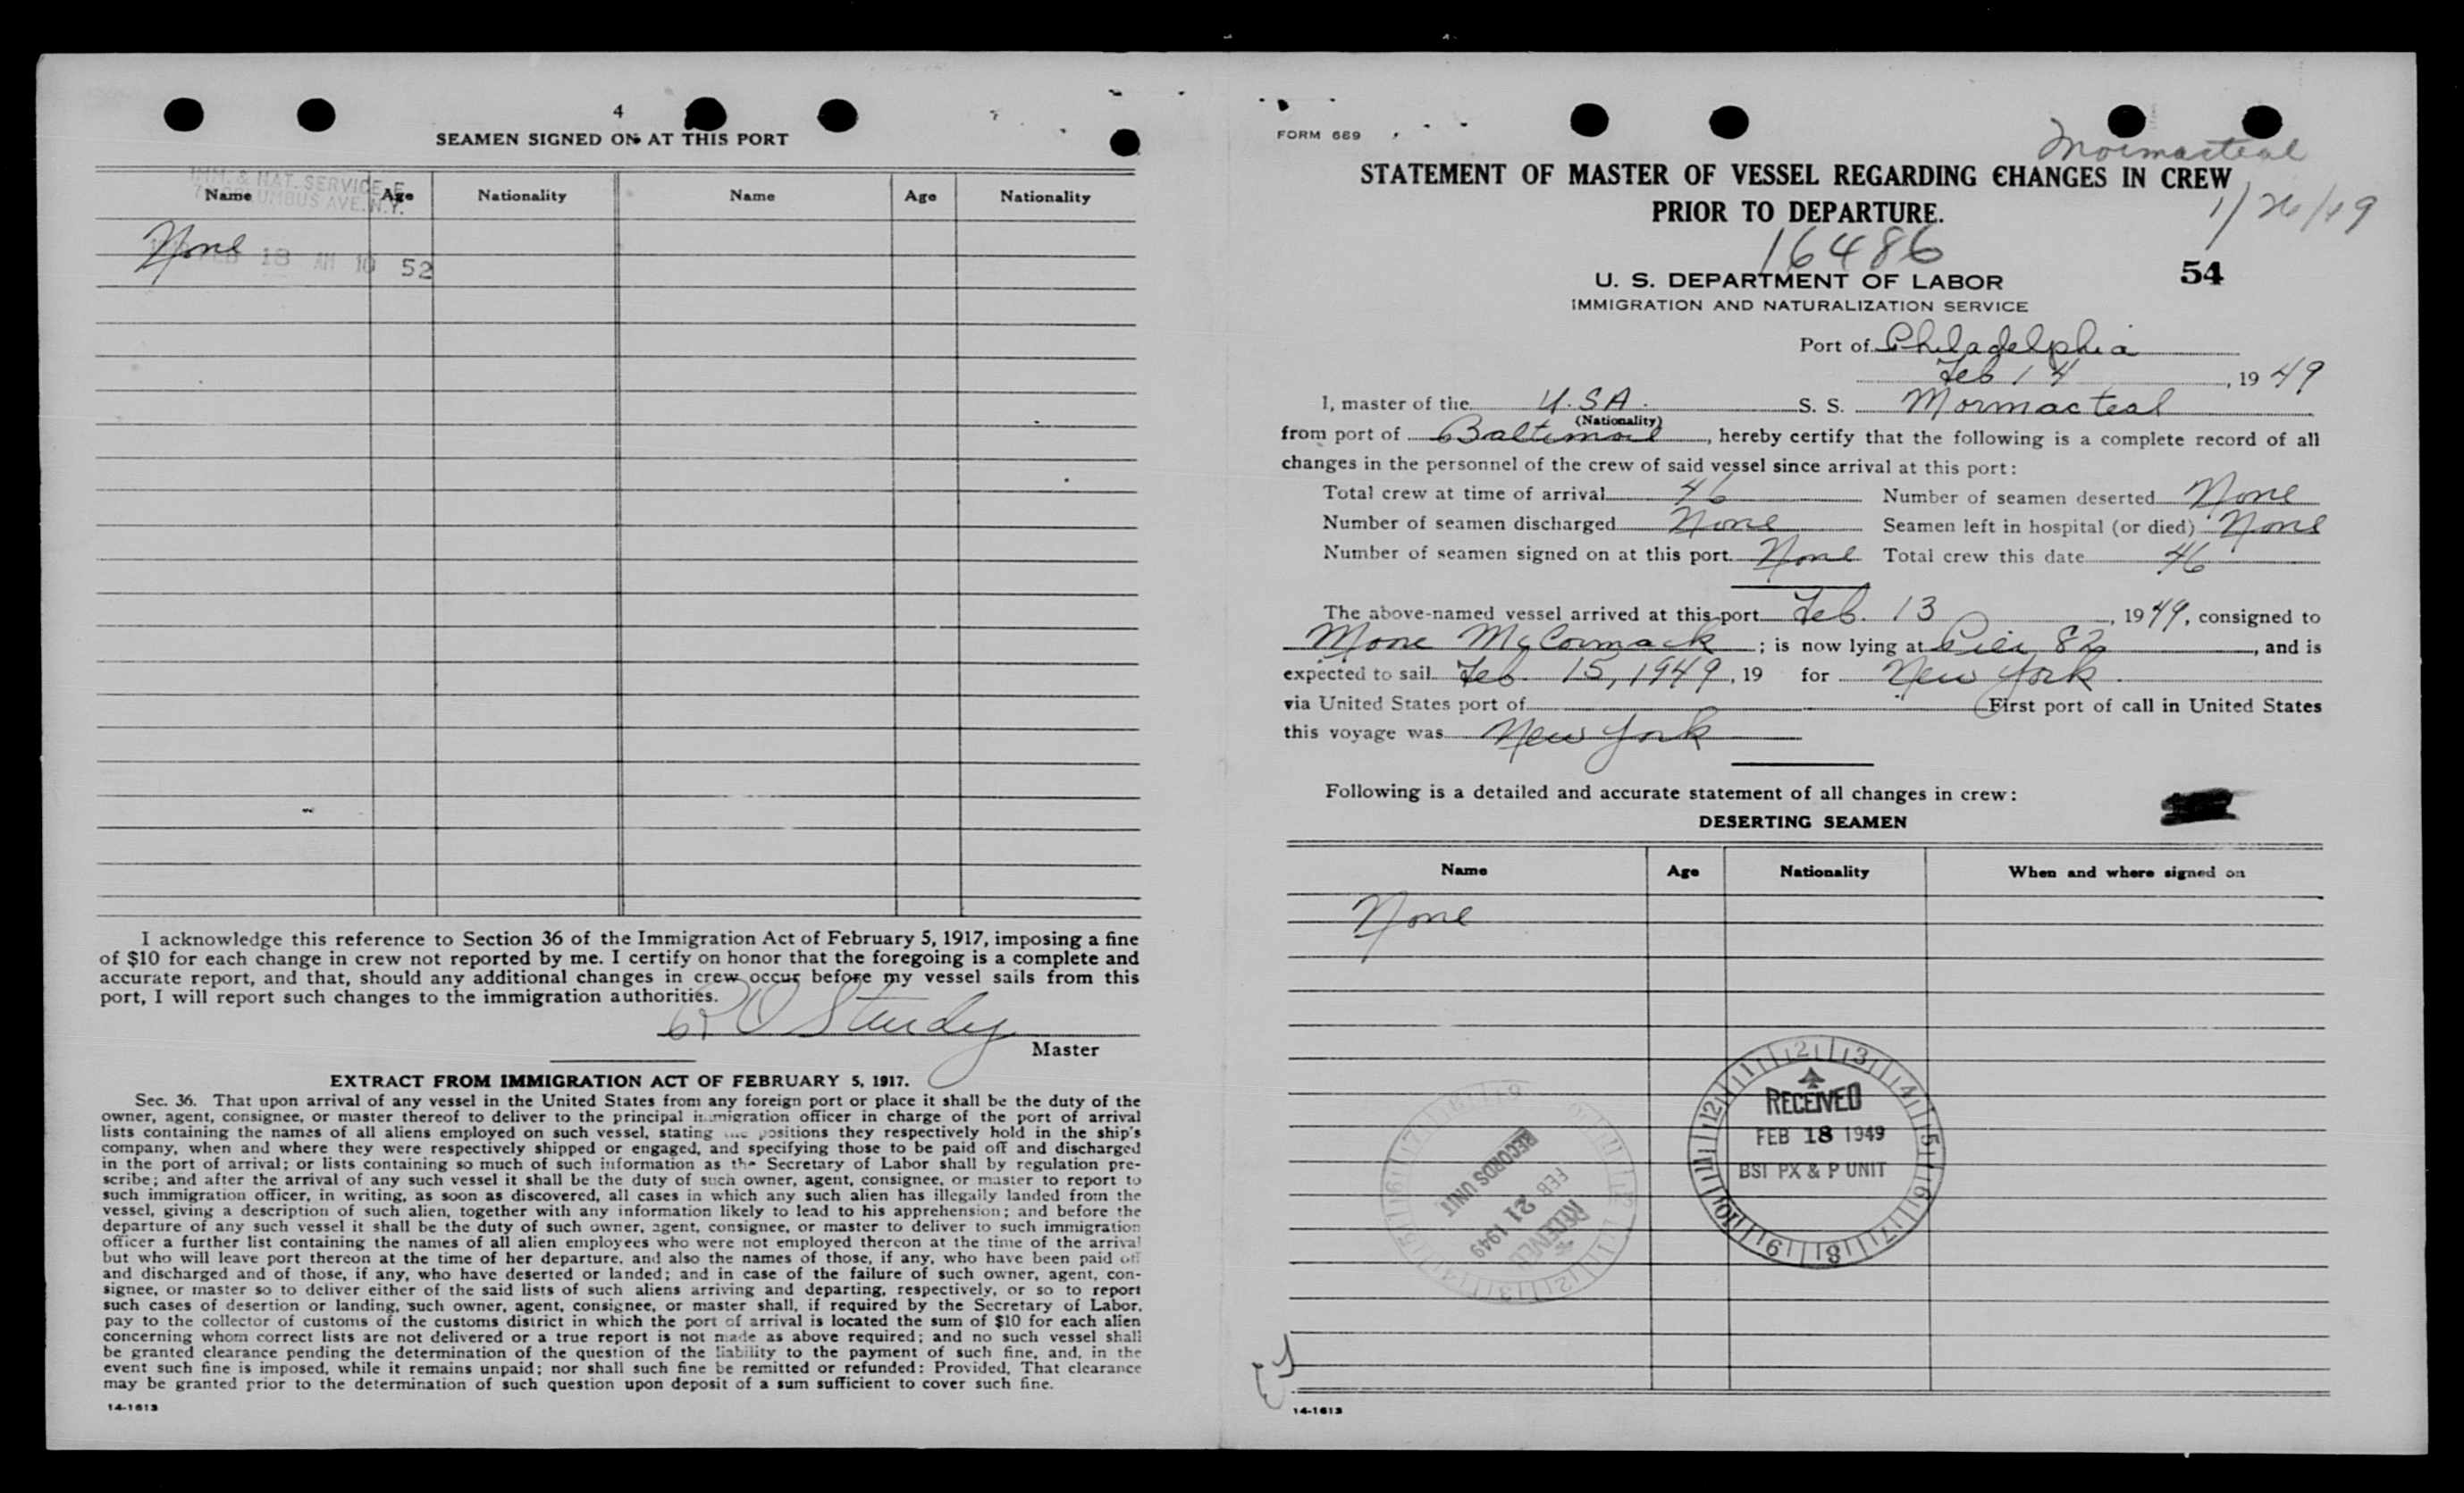 4
SEAMEN SIGNED ON AT THIS PORT
IMM. & NAT. SERVICE
COLUMBUS AVE. N.Y.
Name Age Nationality Name Age Nationality
None
FEB 18 AM 10 52
I acknowledge this reference to Section 36 of the Immigration Act of February 5, 1917, imposing a fine
of $10 for each change in crew not reported by me. I certify on honor that the foregoing is a complete and
accurate report, and that, should any additional changes in crew occur before my vessel sails from this
port, I will report such changes to the immigration authorities.
Sturdy
Master
EXTRACT FROM IMMIGRATION ACT OF FEBRUARY 5, 1917.
Sec. 36. That upon arrival of any vessel in the United States from any foreign port or place it shall be the duty of the
owner, agent, consignee, or master thereof to deliver to the principal immigration officer in charge of the port of arrival
lists containing the names of all aliens employed on such vessel, stating the positions they respectively hold in the ship's
company, when and where they were respectively shipped or engaged, and specifying those to be paid off and discharged
in the port of arrival; or lists containing so much of such information as the Secretary of Labor shall by regulation pre-
scribe; and after the arrival of any such vessel it shall be the duty of such owner, agent, consignee, or master to report to
such immigration officer, in writing, as soon as discovered, all cases in which any such alien has illegally landed from the
vessel, giving a description of such alien, together with any information likely to lead to his apprehension; and before the
departure of any such vessel it shall be the duty of such owner, agent, consignee, or master to deliver to such immigration
officer a further list containing the names of all alien employees who were not employed thereon at the time of the arrival
but who will leave port thereon at the time of her departure, and also the names of those, if any, who have been paid off
and discharged and of those, if any, who have deserted or landed; and in case of the failure of such owner, agent, con-
signee, or master so to deliver either of the said lists of such aliens arriving and departing, respectively, or so to report
such cases of desertion or landing, such owner, agent, consignee, or master shall, if required by the Secretary of Labor,
pay to the collector of customs of the customs district in which the port of arrival is located the sum of $10 for each alien
concerning whom correct lists are not delivered or a true report is not made as above required; and no such vessel shall
be granted clearance pending the determination of the question of the liability to the payment of such fine, and, in the
event such fine is imposed, while it remains unpaid; nor shall such fine be remitted or refunded: Provided, That clearance
may be granted prior to the determination of such question upon deposit of a sum sufficient to cover such fine.
14-1613
FORM 689
Mormacteal
1/26/49
STATEMENT OF MASTER OF VESSEL REGARDING CHANGES IN CREW
PRIOR TO DEPARTURE.
16486
U. S. DEPARTMENT OF LABOR 54
IMMIGRATION AND NATURALIZATION SERVICE
Port of Philadelphia
Feb 14, 1949
I, master of the U.S.A. S. S. Mormacteal
(Nationality)
from port of Baltimore, hereby certify that the following is a complete record of all
changes in the personnel of the crew of said vessel since arrival at this port:
Total crew at time of arrival 46 Number of seamen deserted None
Number of seamen discharged None Seamen left in hospital (or died) None
Number of seamen signed on at this port None Total crew this date 46
The above-named vessel arrived at this port Feb. 13, 1949, consigned to
More McCormack; is now lying at Pier 82, and is
expected to sail Feb. 15, 1949, 19 for New York.
via United States port of First port of call in United States
this voyage was New York
Following is a detailed and accurate statement of all changes in crew:
DESERTING SEAMEN
Name Age Nationality When and where signed on
None
RECEIVED
FEB 18 1949
BSI PX & P UNIT
RECORDS UNIT
FEB 21 1949
RECEIVED
14-1613